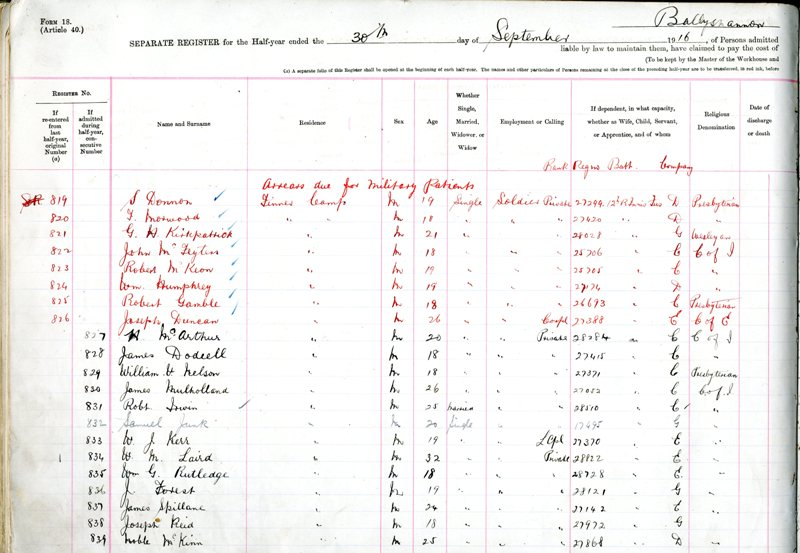 Form 18.
(Article 40.)
Ballyshannon
SEPARATE REGISTER for the Half-year ended the 30th day of September 1916, of Persons admitted
liable by law to maintain them, have claimed to pay the cost of
(To be kept by the Master of the Workhouse and
(a) A separate folio of this Register shall be opened at the beginning of each half-year. The names and other particulars of Persons remaining at the close of the preceding half-year are to be transferred, in red ink, before
Register No.
If re-entered from last half-year, original Number (a)
If admitted during half-year, consecutive Number
Name and Surname
Residence
Sex
Age
Whether Single, Married, Widower, or Widow
Employment or Calling
If dependent, in what capacity, whether as Wife, Child, Servant, or Apprentice, and of whom
Religious Denomination
Date of discharge or death
Rank Regms Batt. Company
Arrears due for Military Patients
819 Donnon Finner Camp M 19 Single Soldier Private 27294 D Presbyterian
820 Morwood " " M 18 " " " 27420 " D "
821 G. H Kirkpatrick " M 21 " " " 28028 " G Wesleyan
822 John " M 18 " " " 25706 " C C of I
823 Robert McKeon " M 19 " " " 25705 " C "
824 Wm. Humphrey " M 19 " " " D "
825 Robert Gamble " M 18 " " " 26693 " C Presbyterian
826 Joseph Duncan " M 26 " " Corpl 27388 " E C of E
827 H McArthur " M 20 " " Private 28284 " C C of I
828 James " M 18 " " " 27415 " C "
829 William H Nelson " M 18 " " " 27371 " C Presbyterian
830 James Mulholland " M 26 " " " 27052 " C C of I
831 Robt Irwin " M 25 Married " " 28510 " C "
832 Samuel " M 20 Single " " 17495 " G "
833 W J Kerr " M 19 " " L Cpl 27370 " E "
834 W. M. Laird " M 32 " " Private 28822 " E "
835 Wm G. Rutledge " M 18 " " " 28728 " E "
836 J Forest " M 19 " " " 28121 " G "
837 James Spillane " M 24 " " " 27142 " E "
838 Joseph Reid " M 18 " " " 27972 " G "
839 Noble McKinn " M 25 " " " 27868 " D "